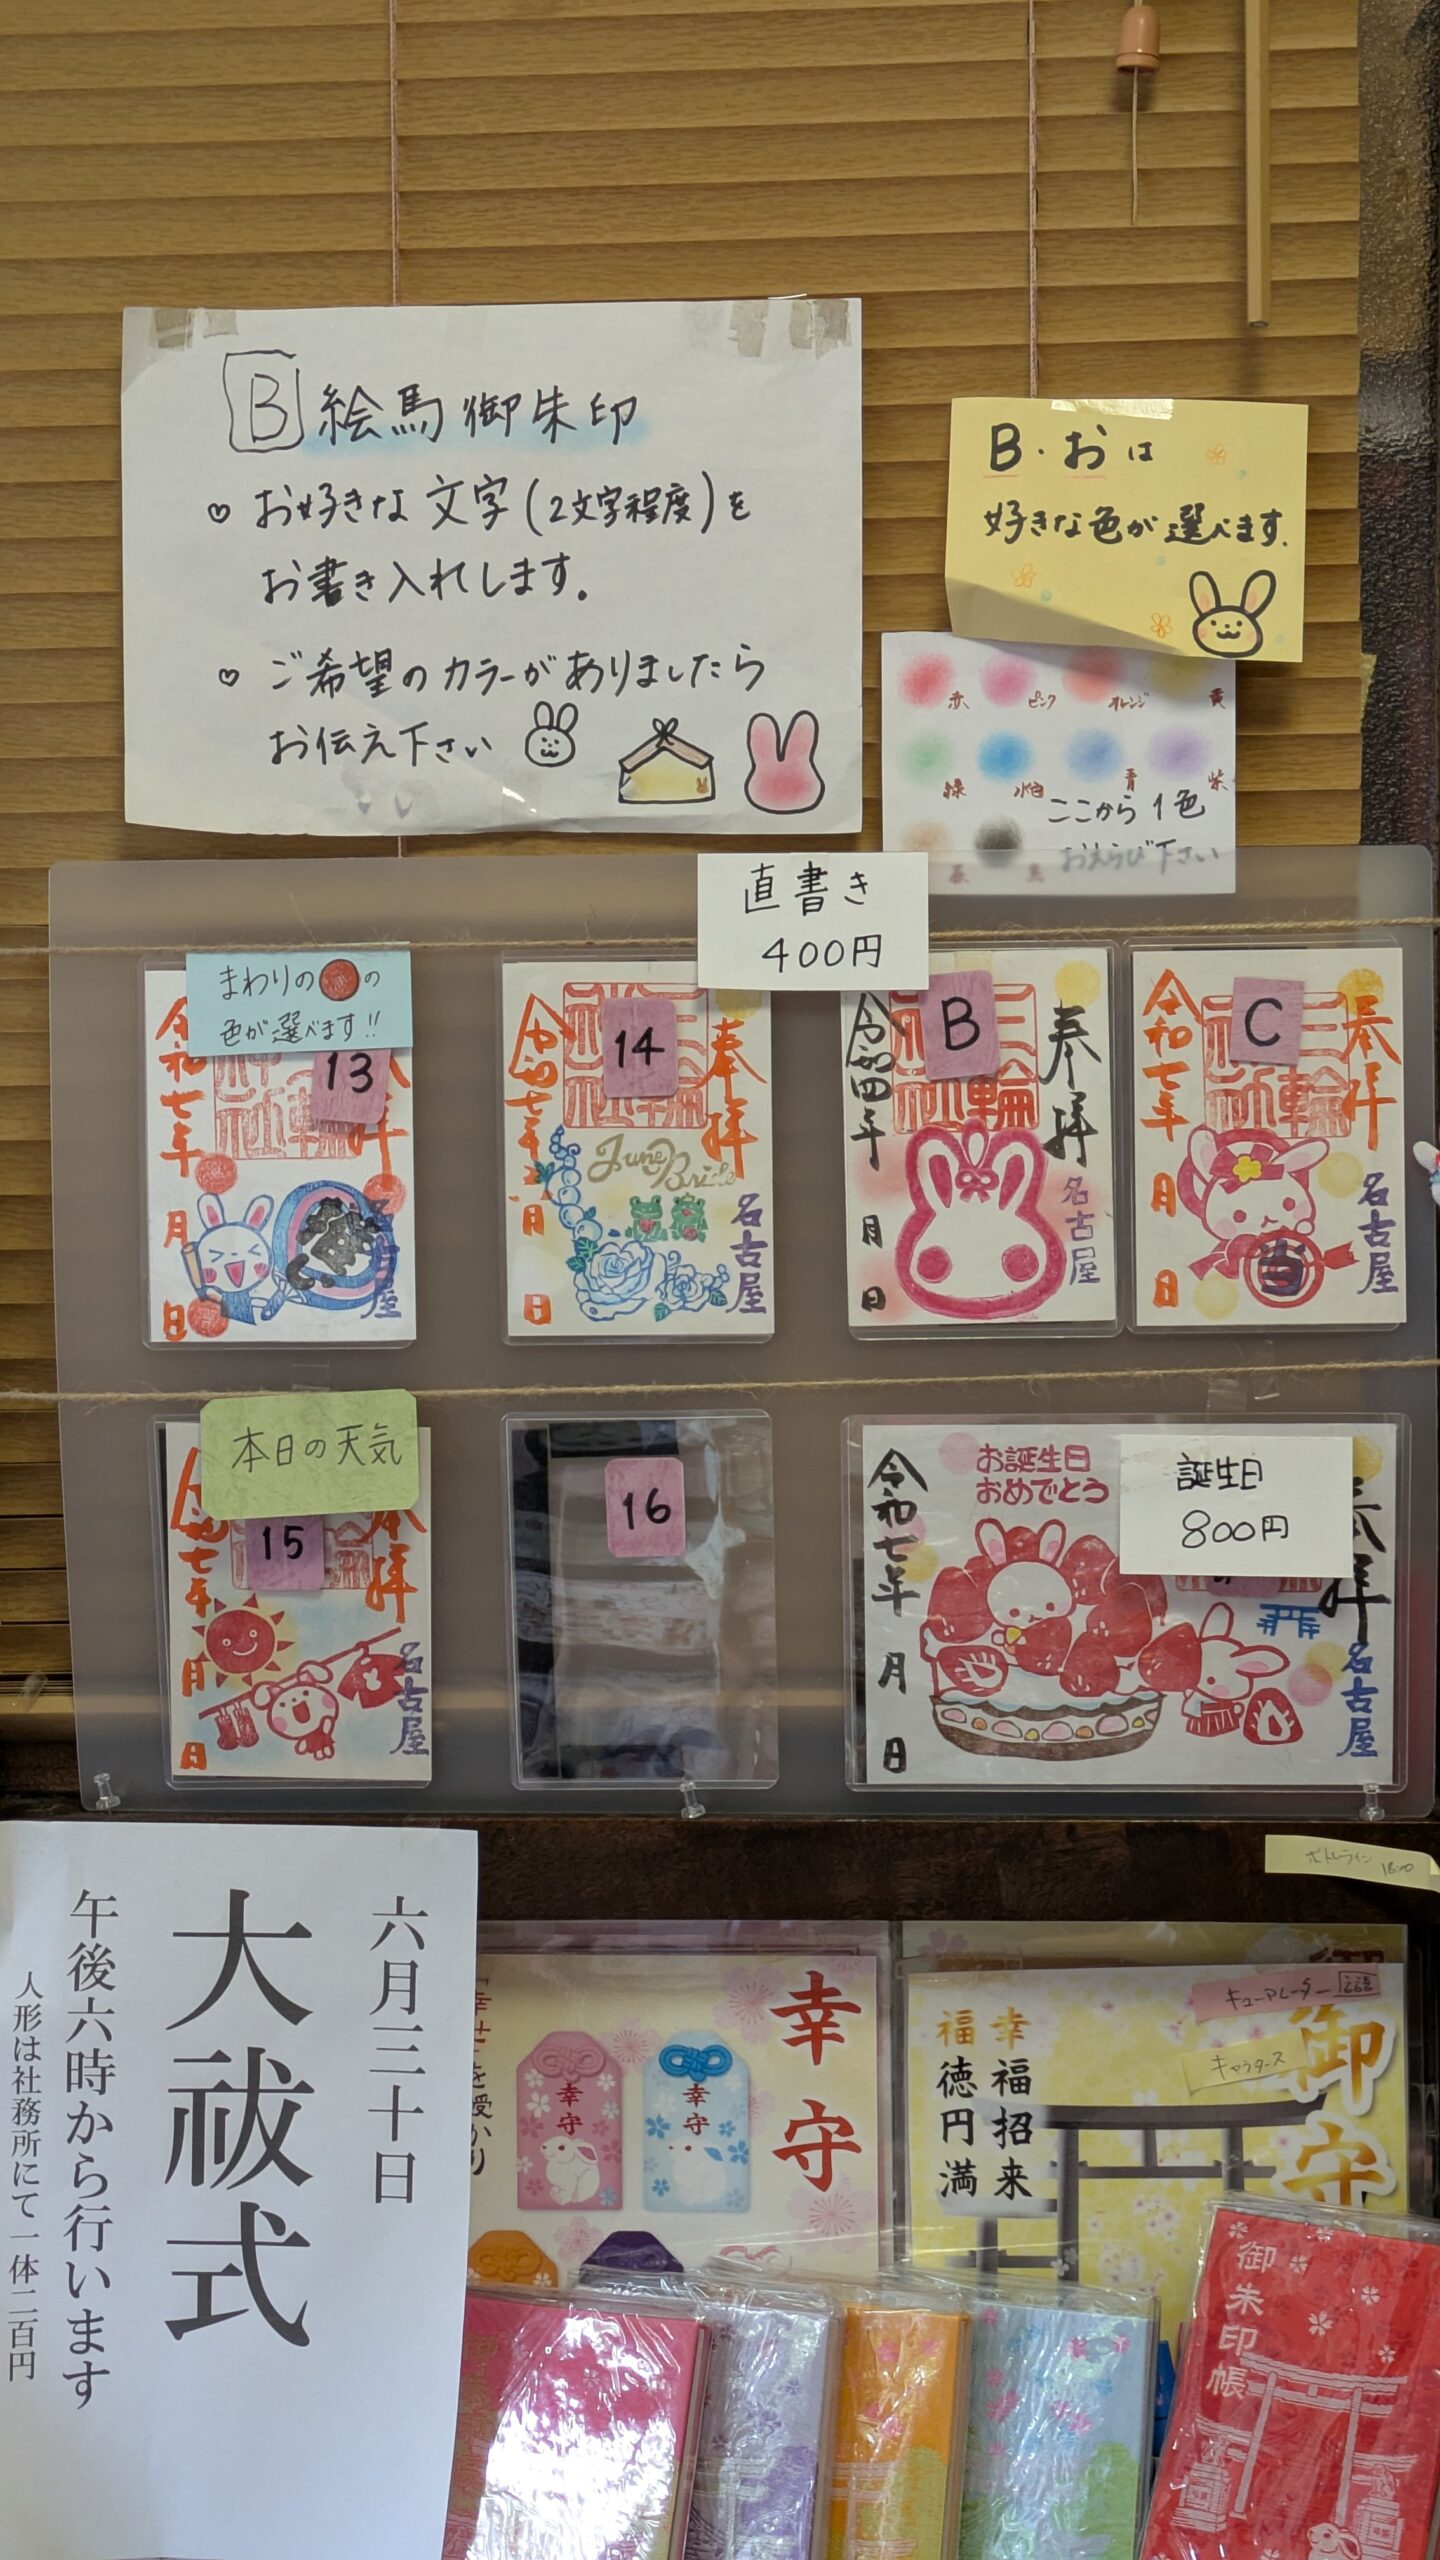 B 絵馬御朱印
♡ お好きな文字(2文字程度)を
お書き入れします。
♡ ご希望のカラーがありましたら
お伝え下さい
B・おは
好きな色が選べます.
赤 ピンク オレンジ 黄
緑 水色 青 紫
茶 黒
ここから1色
おえらび下さい
直書き
400円
まわりの の
色が選べます!!
13
令和七年 月 日
名古屋
14
奉拝
June
Bride
名古屋
令和七年 月 日
B
奉拝
三輪神社
名古屋
令和四年 月 日
C
奉拝
三輪神社
名古屋
当
令和七年 月 日
本日の天気
15
奉拝
名古屋
月 日
16
お誕生日
おめでとう
誕生日
800円
奉拝
名古屋
令和七年 月 日
六月三十日
大祓式
午後六時から行います
人形は社務所にて一体二百円
幸守
幸守
幸守
御守
キーアレーター
幸福招来
福徳円満
御朱印帳